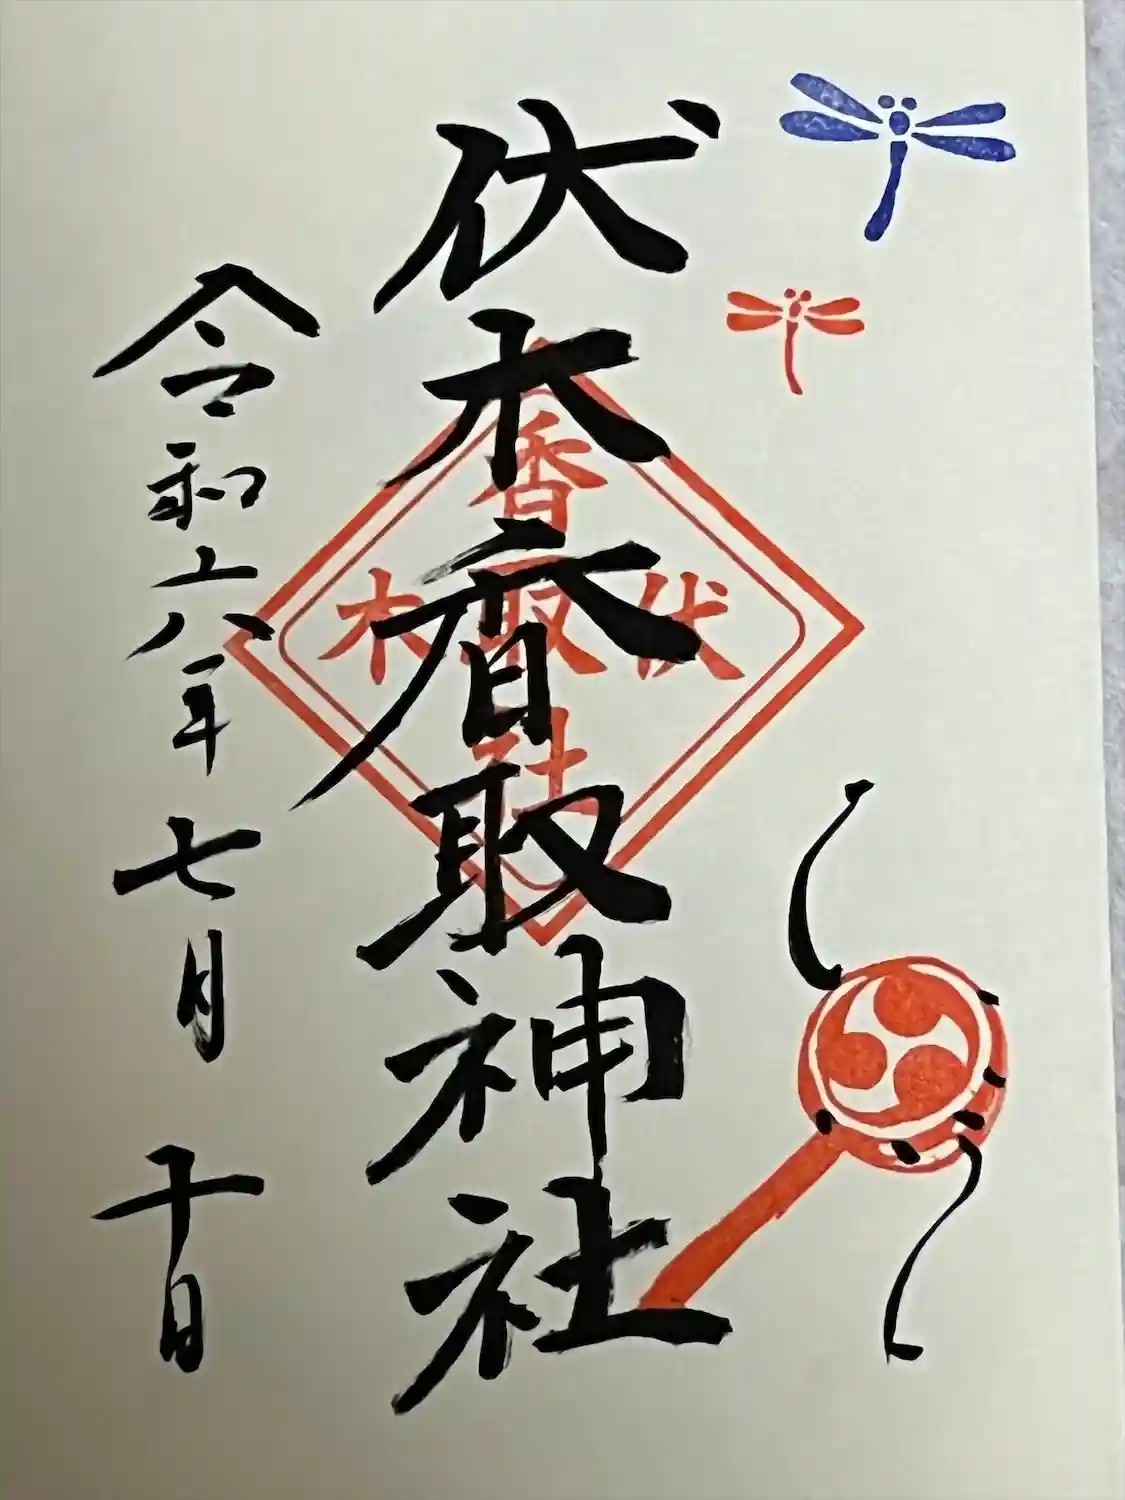 伏木香取神社
香
伏取木
社
令和六年七月十日